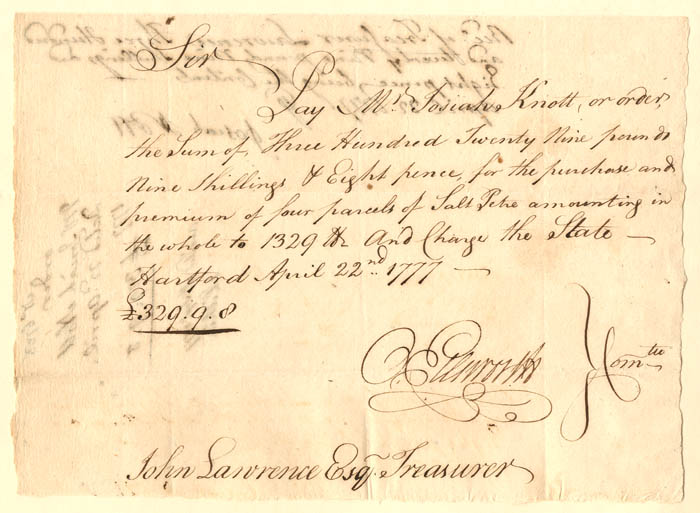 Sir
Pay Mr. Josiah Knott, or order,
the Sum of Three Hundred Twenty Nine pounds
Nine Shillings & Eight pence, for the purchase and
premium of four parcels of Salt Petre amounting in
the whole to 1329 lb And Charge the State —
Hartford April 22nd. 1777 —
£329.9.8
O. Ellsworth } Comtee
John Lawrence Esqr. Treasurer